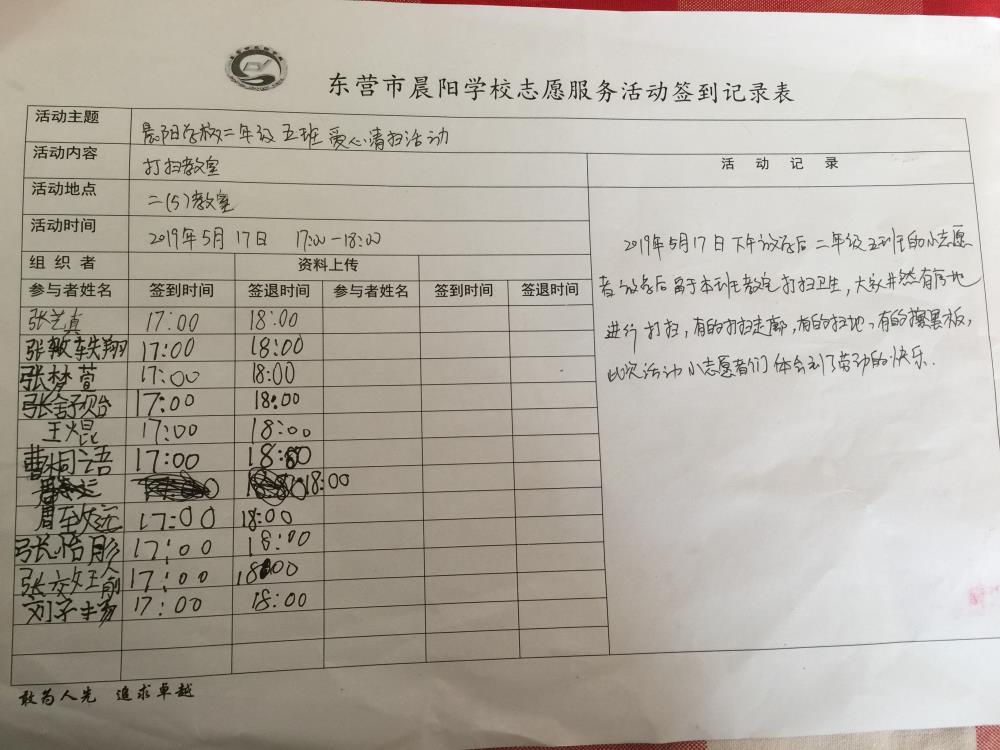 东营市晨阳学校志愿服务活动签到记录表
活动主题 晨阳学校二年级五班爱心清扫活动
活动内容 打扫教室
活动记录
活动地点 二(5)教室
活动时间 2019年5月17日 17:00-18:00
组织者 资料上传
参与者姓名 签到时间 签退时间 参与者姓名 签到时间 签退时间
张艺真 17:00 18:00
张轶翔 17:00 18:00
张梦萱 17:00 18:00
张舒贻 17:00 18:00
王焜 17:00 18:00
曹桐语 17:00 18:00
18:00
周 17:00 18:00
张悟彤 17:00 18:00
张 17:00 18:00
刘子 17:00 18:00
2019年5月17日下午放学后二年级五班的小志愿
者放学后留于本班教室打扫卫生,大家井然有序地
进行打扫,有的打扫走廊,有的扫地,有的擦黑板,
此次活动小志愿者们体会到了劳动的快乐.
敢为人先 追求卓越